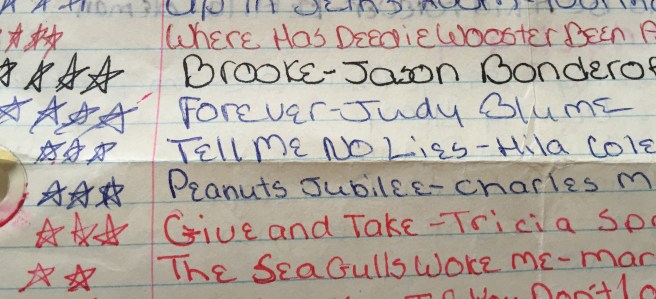 Up in
Where Has Deedie Wooster Been A
Brooke-Jason Bonderof
Forever-Judy Blume
Tell Me No Lies-Hila Cole
Peanuts Jubilee-Charles M
Give and Take-Tricia Sp
The Sea Gulls Woke Me-Mar
You Don't